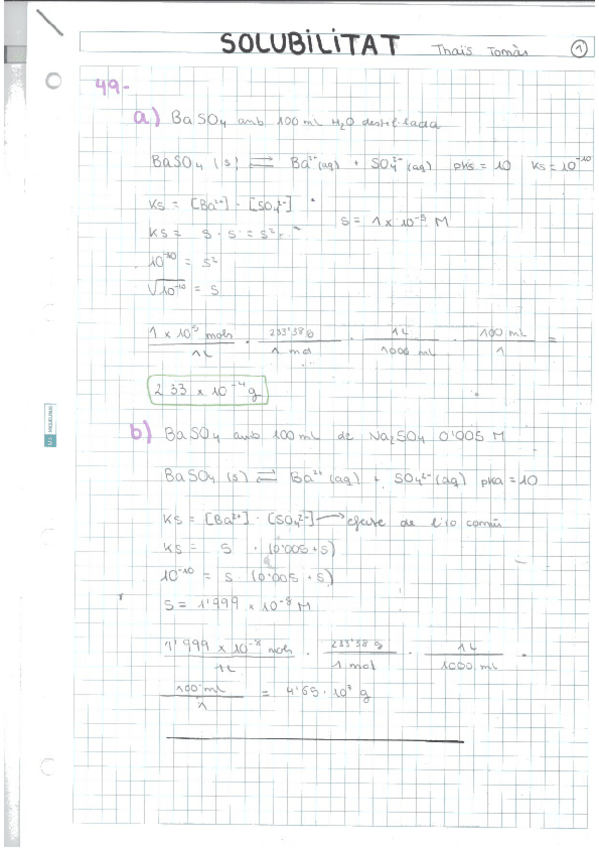 SOLUBILITAT Thaïs Tomàs 1
49-
a) BaSO4 amb 100 mL H2O destil·lada
BaSO4 (s) ⇌ Ba²⁺(aq) + SO4²⁻(aq) pKs = 10 Ks = 10⁻¹⁰
Ks = [Ba²⁺] · [SO4²⁻]
Ks = s · s = s² s = 1 x 10⁻⁵ M
10⁻¹⁰ = s²
√10⁻¹⁰ = s
1 x 10⁻⁵ mols / 1L · 233'38 g / 1 mol · 1L / 1000 mL · 100 mL / 1 =
2'33 x 10⁻⁴ g
b) BaSO4 amb 100 mL de Na2SO4 0'005 M
BaSO4 (s) ⇌ Ba²⁺(aq) + SO4²⁻(aq) pka = 10
Ks = [Ba²⁺] · [SO4²⁻] → efecte de l'ió comú
Ks = s · (0'005 + s)
10⁻¹⁰ = s · (0'005 + s)
s = 1'999 x 10⁻⁸ M
1'999 x 10⁻⁸ mols / 1L · 233'38 g / 1 mol · 1L / 1000 mL ·
100 mL / 1 = 4'65 · 10⁻⁷ g